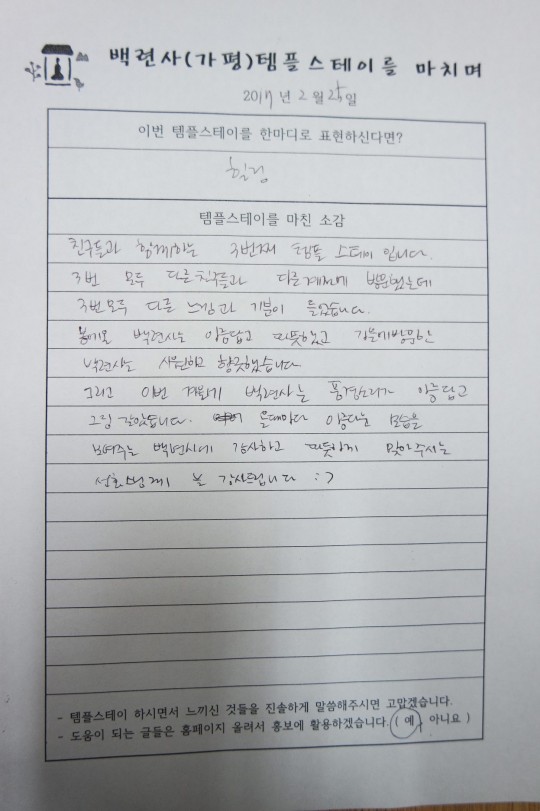 백련사(가평)템플스테이를 마치며
2017년 2월 25일
이번 템플스테이를 한마디로 표현하신다면?
힐링
템플스테이를 마친 소감
친구들과 함께하는 3번째 템플 스테이 입니다.
3번 모두 다른친구들과 다른계절에 방문했는데
3번모두 다른 느낌과 기분이 들었습니다.
봄에온 백련사는 아름답고 따뜻했고 가을에방문한
백련사는 시원하고 향긋했습니다
그리고 이번 겨울기 백련사는 풍경소리가 아름답고
그림 같았습니다. 올때마다 아름다운 모습을
보여주는 백련사에 감사하고 따듯하게 맞아주시는
스님께 감사드립니다 :)
- 템플스테이 하시면서 느끼신 것들을 진솔하게 말씀해주시면 고맙겠습니다.
- 도움이 되는 글들은 홈페이지 올려서 홍보에 활용하겠습니다. ( 예 아니요 )